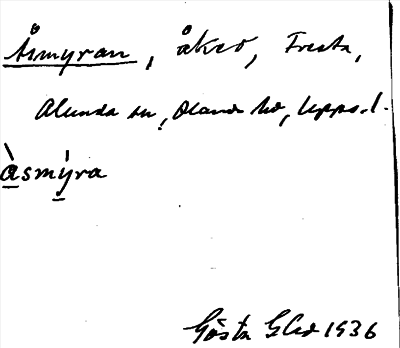 Åsmyran, åker, Fresta,
Alunda sn, Olands hd, Upps. l.
àsmýra
Gösta Eled 1936